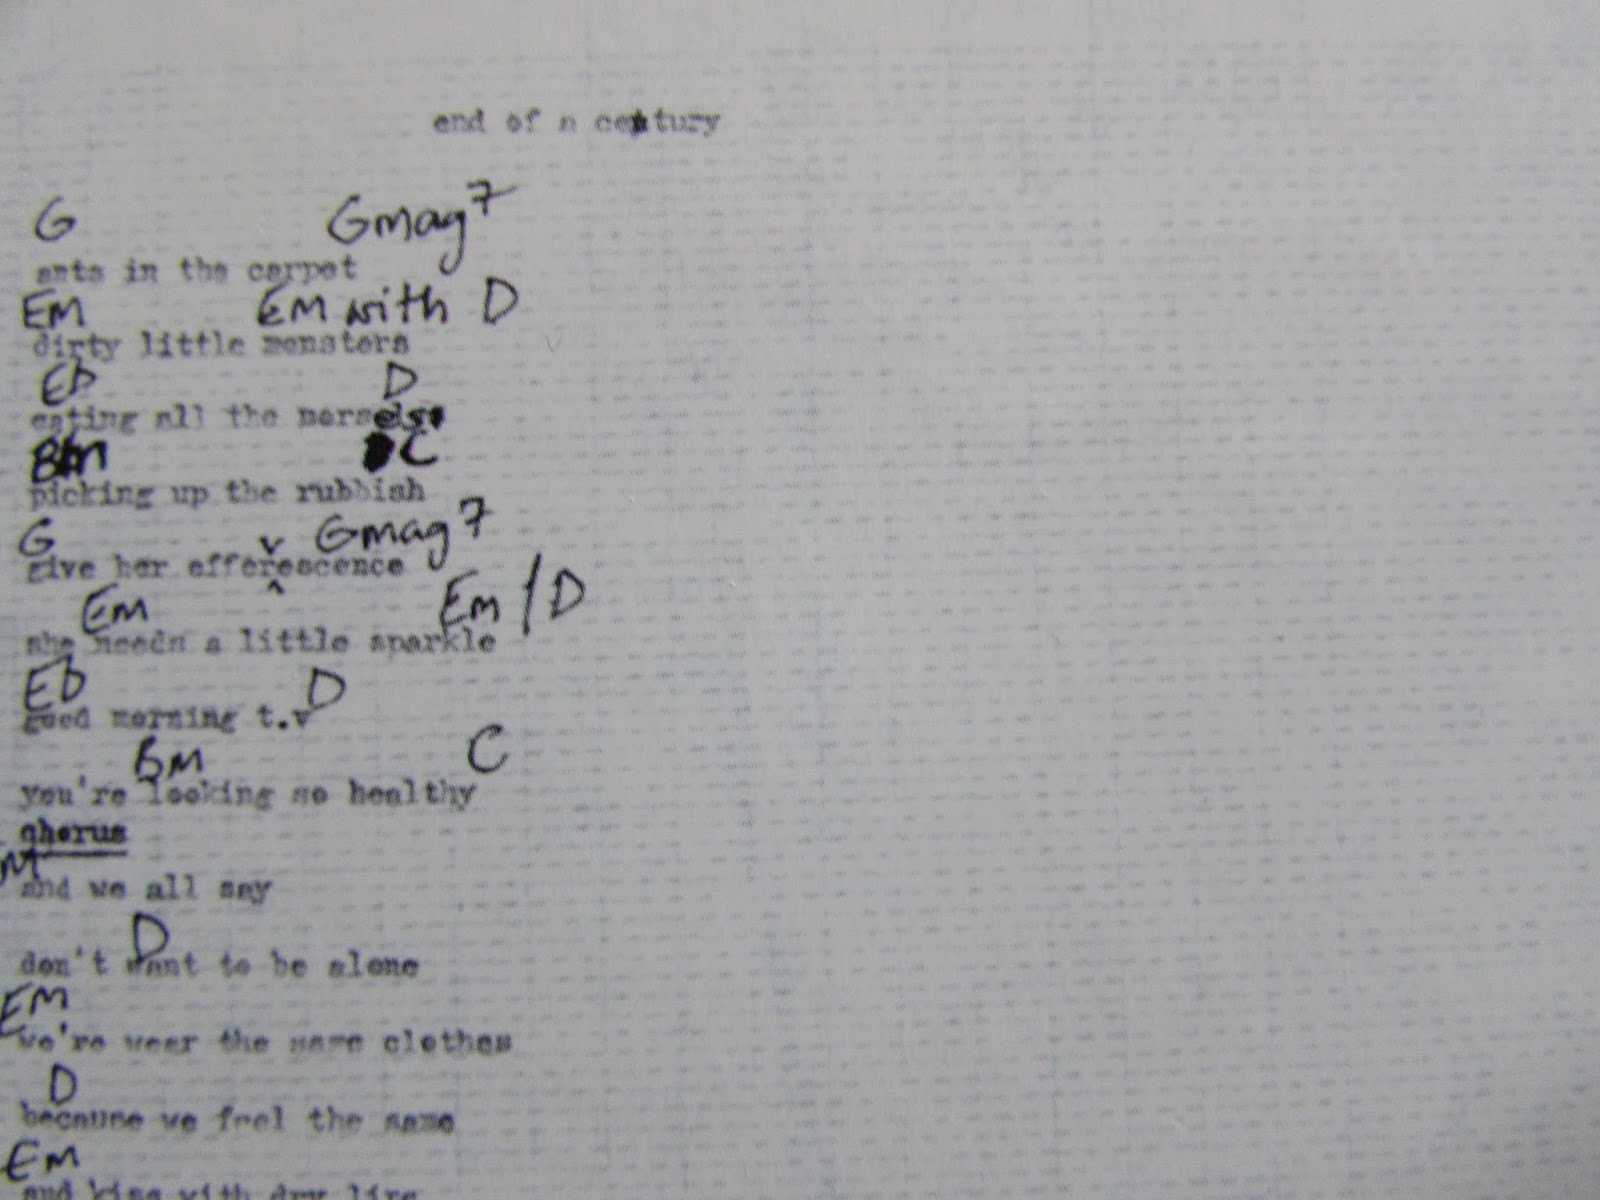 end of a century
G Gmag7
ants in the carpet
Em Em with D
dirty little monsters
Eb D
eating all the morsels.
Bm C
picking up the rubbish
G Gmag7
give her effervescence
Em Em/D
she needs a little sparkle
Eb D
good morning t.v
Bm C
you're looking so healthy
chorus
m
and we all say
D
don't want to be alone
Em
we're wear the same clothes
D
because we feel the same
Em
and kiss with dry lips